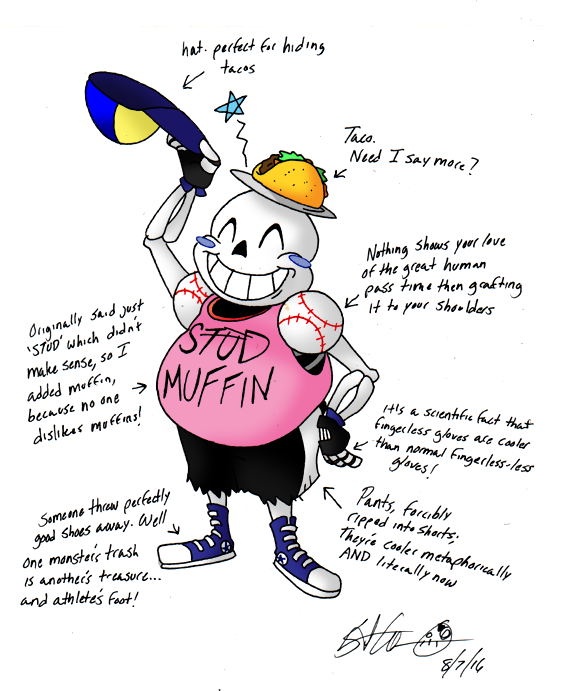 hat. perfect for hiding
tacos
Taco.
Need I say more?
Nothing shows your love
of the great human
pass time then grafting
it to your shoulders
Originally said just
'STUD' which didn't
make sense, so I
added muffin,
because no one
dislikes muffins!
STUD
MUFFIN
it's a scientific fact that
fingerless gloves are cooler
than normal fingerless-less
gloves!
Pants, forcibly
ripped into shorts.
They're cooler metaphorically
AND literally now
Someone threw perfectly
good shoes away. Well
one monster's trash
is another's treasure...
and athlete's foot!
8/7/16